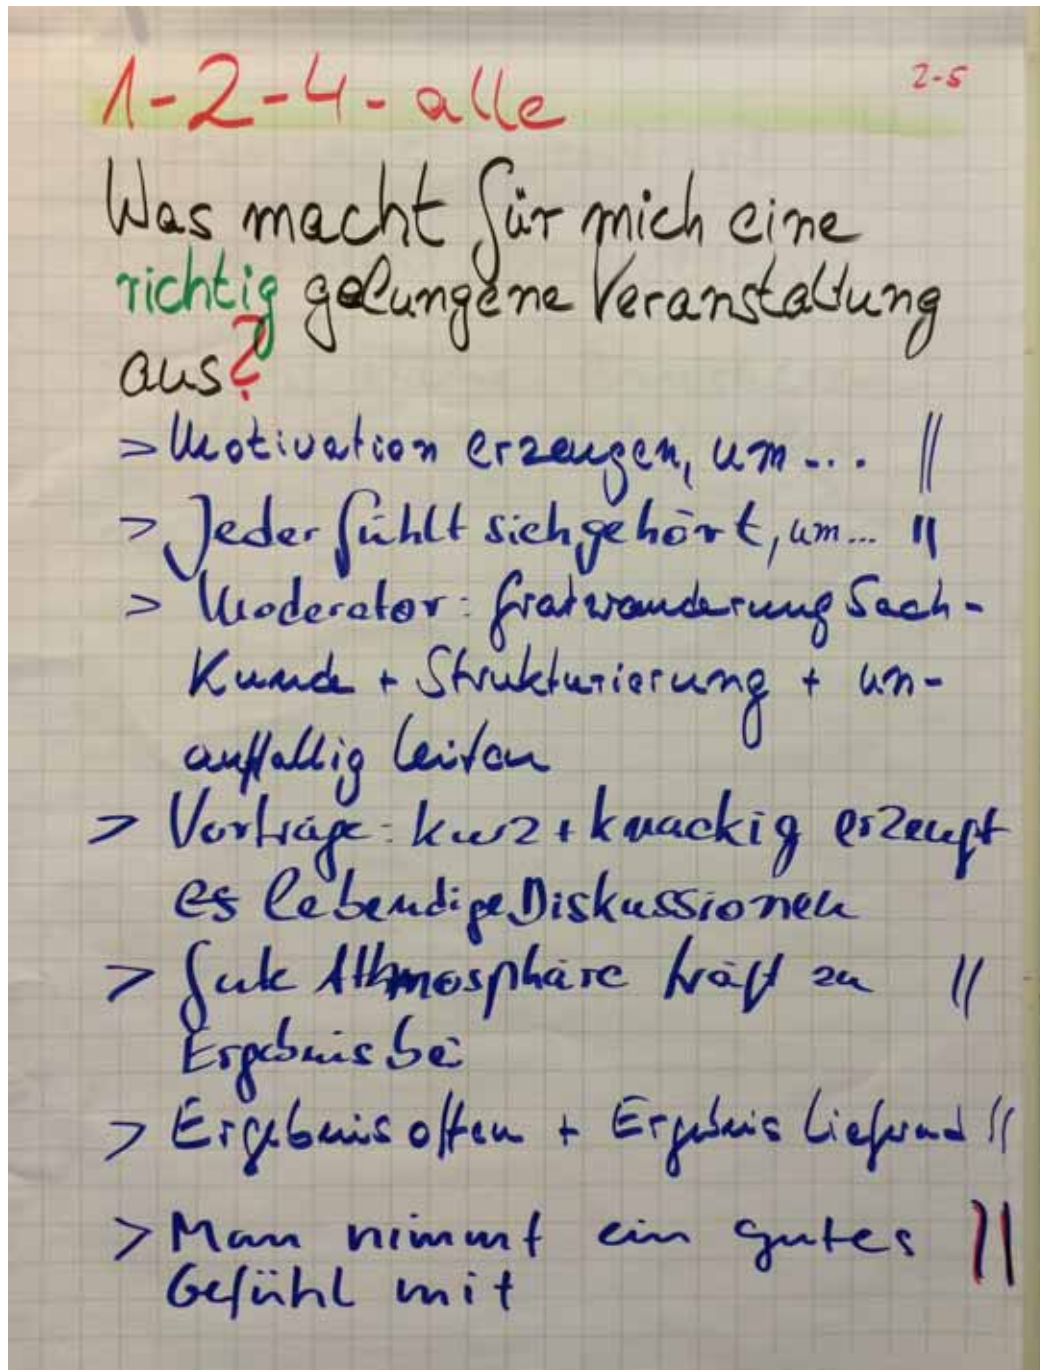 1-2-4-alle 2-5
Was macht für mich eine
richtig gelungene Veranstaltung
aus?
> Motivation erzeugen, um... ||
> Jeder fühlt sich gehört, um... ||
> Moderator: Gratwanderung Sach-
Kunde + Strukturierung + un-
auffällig leiten
> Vorträge: kurz + knackig erzeugt
es lebendige Diskussionen
> Gute Athmosphäre trägt zu ||
Ergebnis bei
> Ergebnis offen + Ergebnis liefernd ||
> Man nimmt ein gutes ||
Gefühl mit